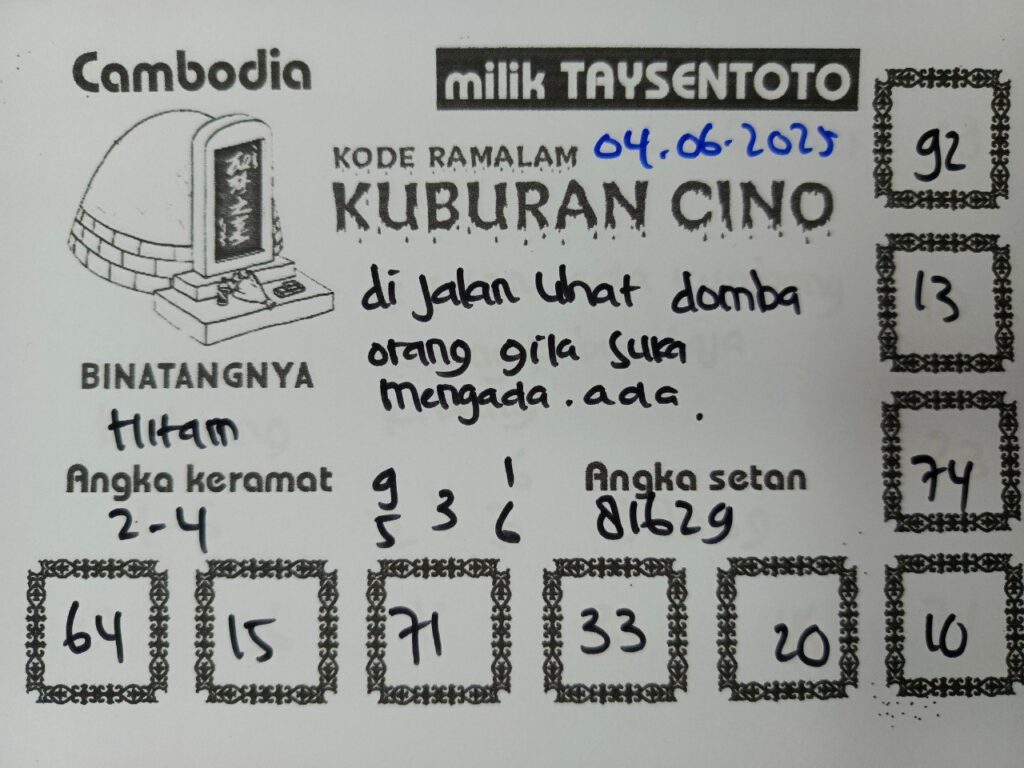 Cambodia
milik TAYSENTOTO
KODE RAMALAM 04.06.2025
KUBURAN CINO
di jalan lihat domba
orang gila suka
mengada.ada.
BINATANGNYA
Hitam
Angka keramat
2-4
9 1
5 3 6
Angka setan
81629
92
13
74
64 15 71 33 20 10